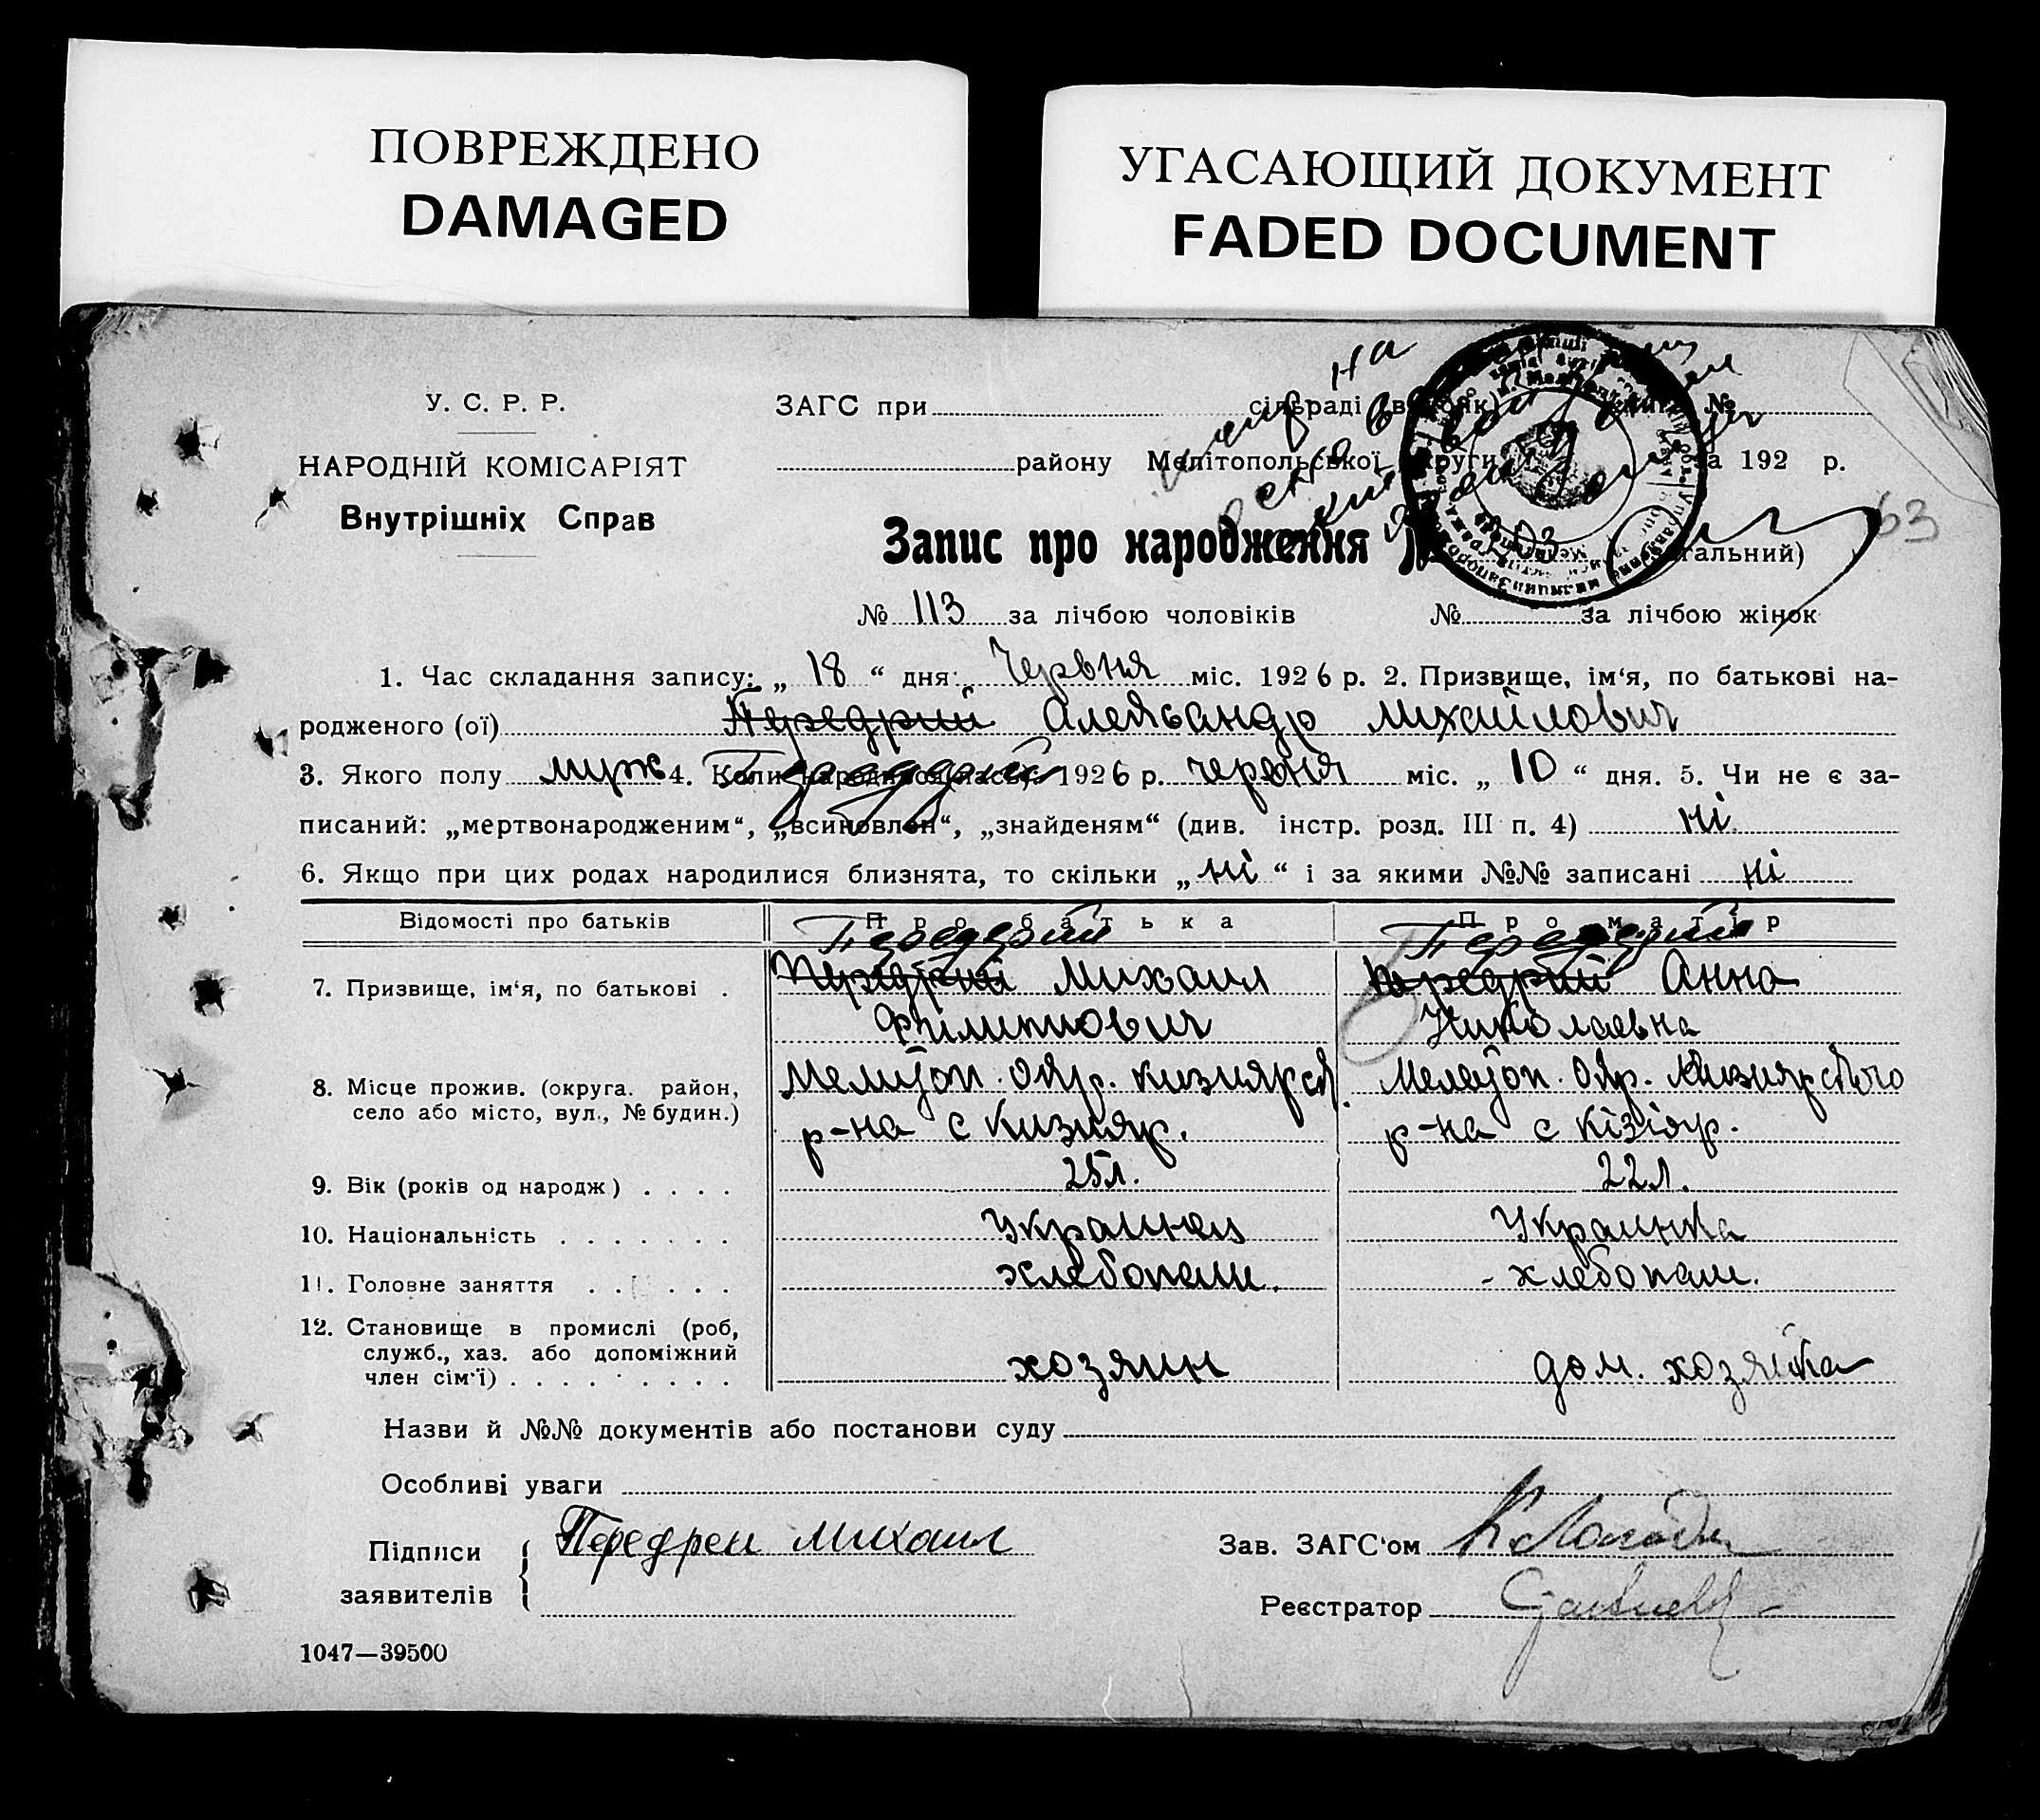 ПОВРЕЖДЕНО
DAMAGED
УГАСАЮЩИЙ ДОКУМЕНТ
FADED DOCUMENT
У. С. Р. Р.
НАРОДНІЙ КОМІСАРІЯТ
Внутрішніх Справ
ЗАГС при сільраді №
району Мелітопольської округи за 192 р.
на
63
Запис про народження
№ 113 за лічбою чоловіків № за лічбою жінок
1. Час складання запису: „ 18 “ дня Червня міс. 1926 р. 2. Призвище, ім‘я, по батькові на-
родженого (ої) Передрий Александр Михайлович
3. Якого полу муж 4. Коли народився (лась) 1926 р. червня міс. „ 10 “ дня. 5. Чи не є за-
Передерий
писаний: „мертвонародженим“, „всиновлен“, „знайденям“ (див. інстр. розд. III п. 4) ні
6. Якщо при цих родах народилися близнята, то скільки „ ні “ і за якими №№ записані ні
Відомості про батьків Про батька Про матір
Передерий Передерий
7. Призвище, ім‘я, по батькові . Передрий Михаил Передрий Анна
Филиппович Николаевна
8. Місце прожив. (округа. район, Мелитоп. окр. Кизиярск. Мелитоп. окр. Кизиярского
село або місто, вул., № будин.) р-на с Кизияр. р-на с Кізіяр.
9. Вік (років од народж) . . . . 25 л. 22 л.
10. Національність . . . . . . . Украинец Украинка
11. Головне заняття . . . . . хлебопаш. - хлебопаш.
12. Становище в промислі (роб,
служб., хаз. або допоміжний
член сім‘ї) . . . . . . . . . хозяин дом. хозяйка
Назви й №№ документів або постанови суду
Особливі уваги
Підписи
заявителів
Передрей Михаил
Зав. ЗАГС‘ом
Реєстратор
1047—39500